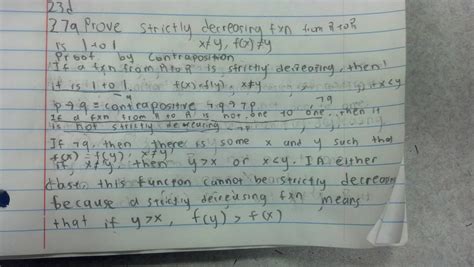 23d
27a Prove strictly decreasing fxn from R to R
is 1 to 1 x≠y, f(x)≠y
Proof by Contraposition
If a fxn from R to R is strictly decreasing, then
it is 1 to 1. f(x)=f(y), x≠y y<x
p → q = contrapositive ¬q → ¬p ¬q
If a fxn from R to R is not one to one, then it
is not strictly decreasing ¬p
If ¬q, then there is some x and y such that
f(x) = f(y), x≠y.
If x≠y, then y>x or x<y. In either
case, this function cannot be strictly decreasing
because a strictly decreasing fxn means
that if y>x, f(y) > f(x)